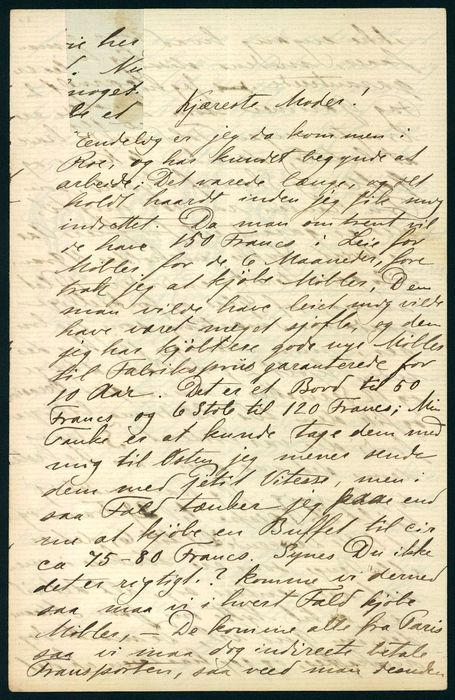 Nu
noget.
et
Kjæreste Moder!
Endelig er jeg da kommen i
Roe, og har kundet begynde at
arbeide; Det varede længe, og det
holdt haardt inden jeg fik mig
indrettet. Da man omtrent vil
de have 150 Francs i Leie for
Møbler for de 6 Maaneder, fore
trak jeg at kjøbe Møbler, Dem
man vilde have leiet mig vilde
have været meget sjofle, og dem
jeg har kjøbt ere gode nye Møbler
til Fabrikspriis garanterede for
10 Aar. Det er et Bord til 50
Francs og 6 Stole til 120 Francs; Min
Tanke er at kunde tage dem med
mig til Østen jeg mener sende
dem med petit Vitesse, men i
saa Fald tænker jeg paa end
nu at kjøbe en Buffet til cir
ca 75-80 Francs. Synes Du ikke
det er rigtigt? komme vi derned
saa maa vi i hvert Fald kjøbe
Møbler, - De komme alle fra Paris
saa vi maa dog indirecte betale
Transporten, saa veed man desuden